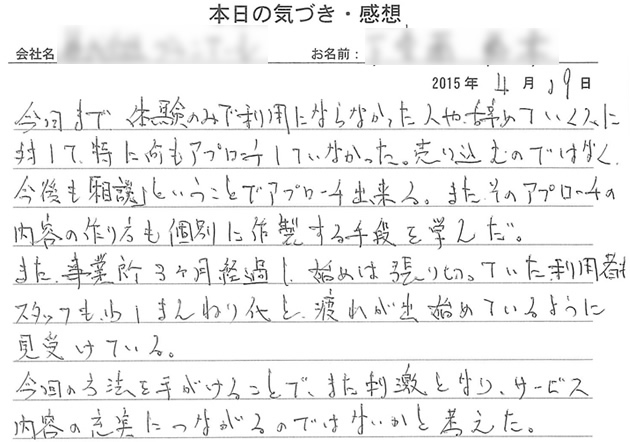 本日の気づき・感想
会社名 お名前：
2015年 4月 19日
今回まで、体験のみで利用にならなかった人や、辞めていく人に
対して、特に何もアプローチしていなかった。売り込むのではなく、
今後も「相談」ということでアプローチ出来る。また、そのアプローチの
内容の作り方も個別に作製する手段を学んだ。
また、事業所3ヶ月経過し、始めは張り切っていた利用者も
スタッフも、少しまんねり代と、疲れが出始めているように
見受けている。
今回の方法を手がけることで、また刺激となり、サービス
内容の充実につながるのではないかと考えた。